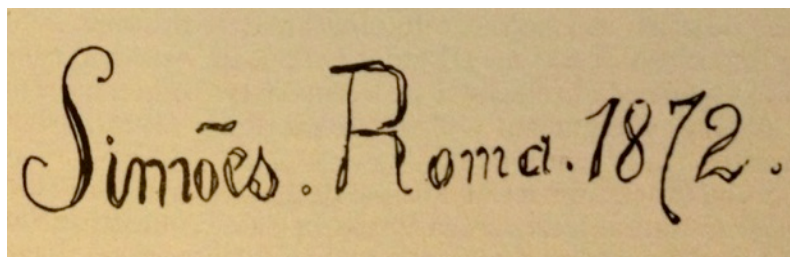 Simões. Roma. 1872.